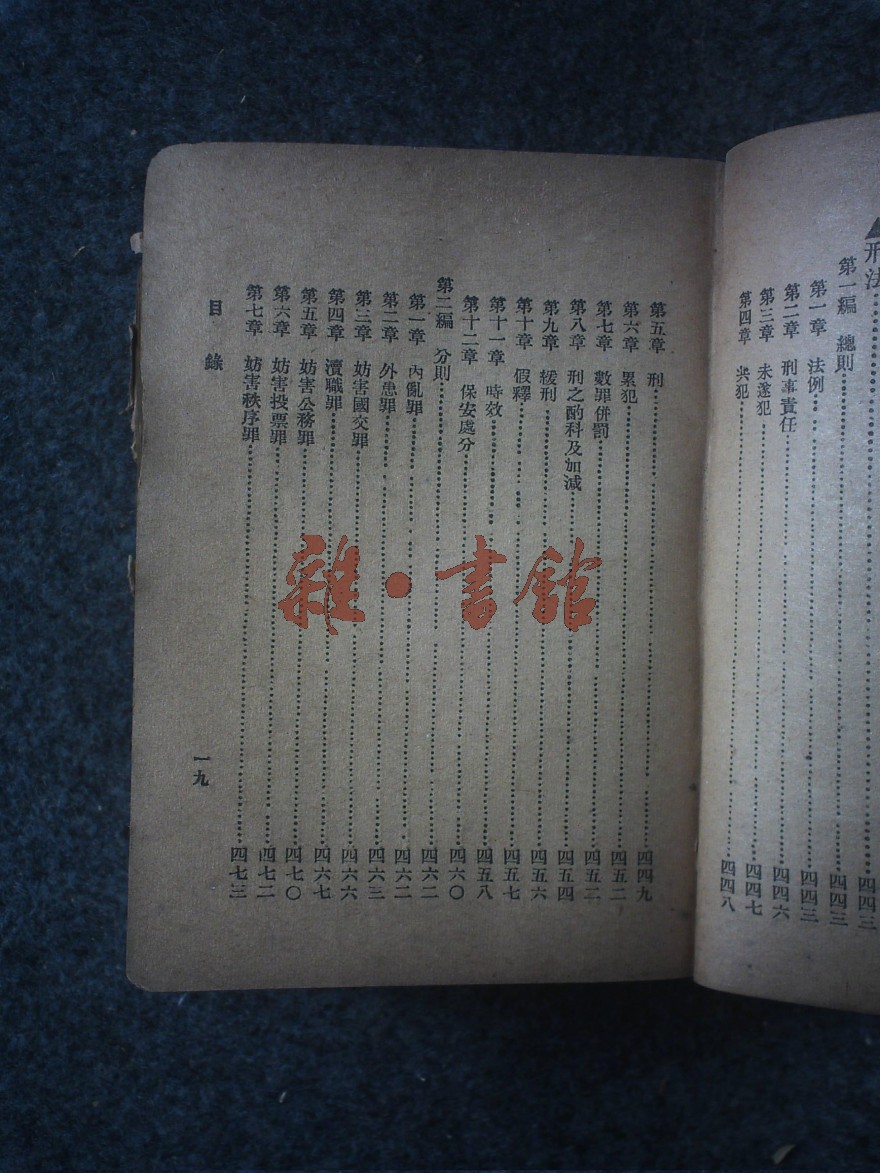 刑法……四四三
第一編 總則……四四三
第一章 法例……四四三
第二章 刑事責任……四四六
第三章 未遂犯……四四七
第四章 共犯……四四八
第五章 刑……四四九
第六章 累犯……四五二
第七章 數罪併罰……四五二
第八章 刑之酌科及加減……四五四
第九章 緩刑……四五六
第十章 假釋……四五七
第十一章 時效……四五八
第十二章 保安處分……四六〇
第二編 分則……四六二
第一章 內亂罪……四六二
第二章 外患罪……四六三
第三章 妨害國交罪……四六六
第四章 瀆職罪……四六七
第五章 妨害公務罪……四七〇
第六章 妨害投票罪……四七二
第七章 妨害秩序罪……四七三
目錄
一九
雜·書館